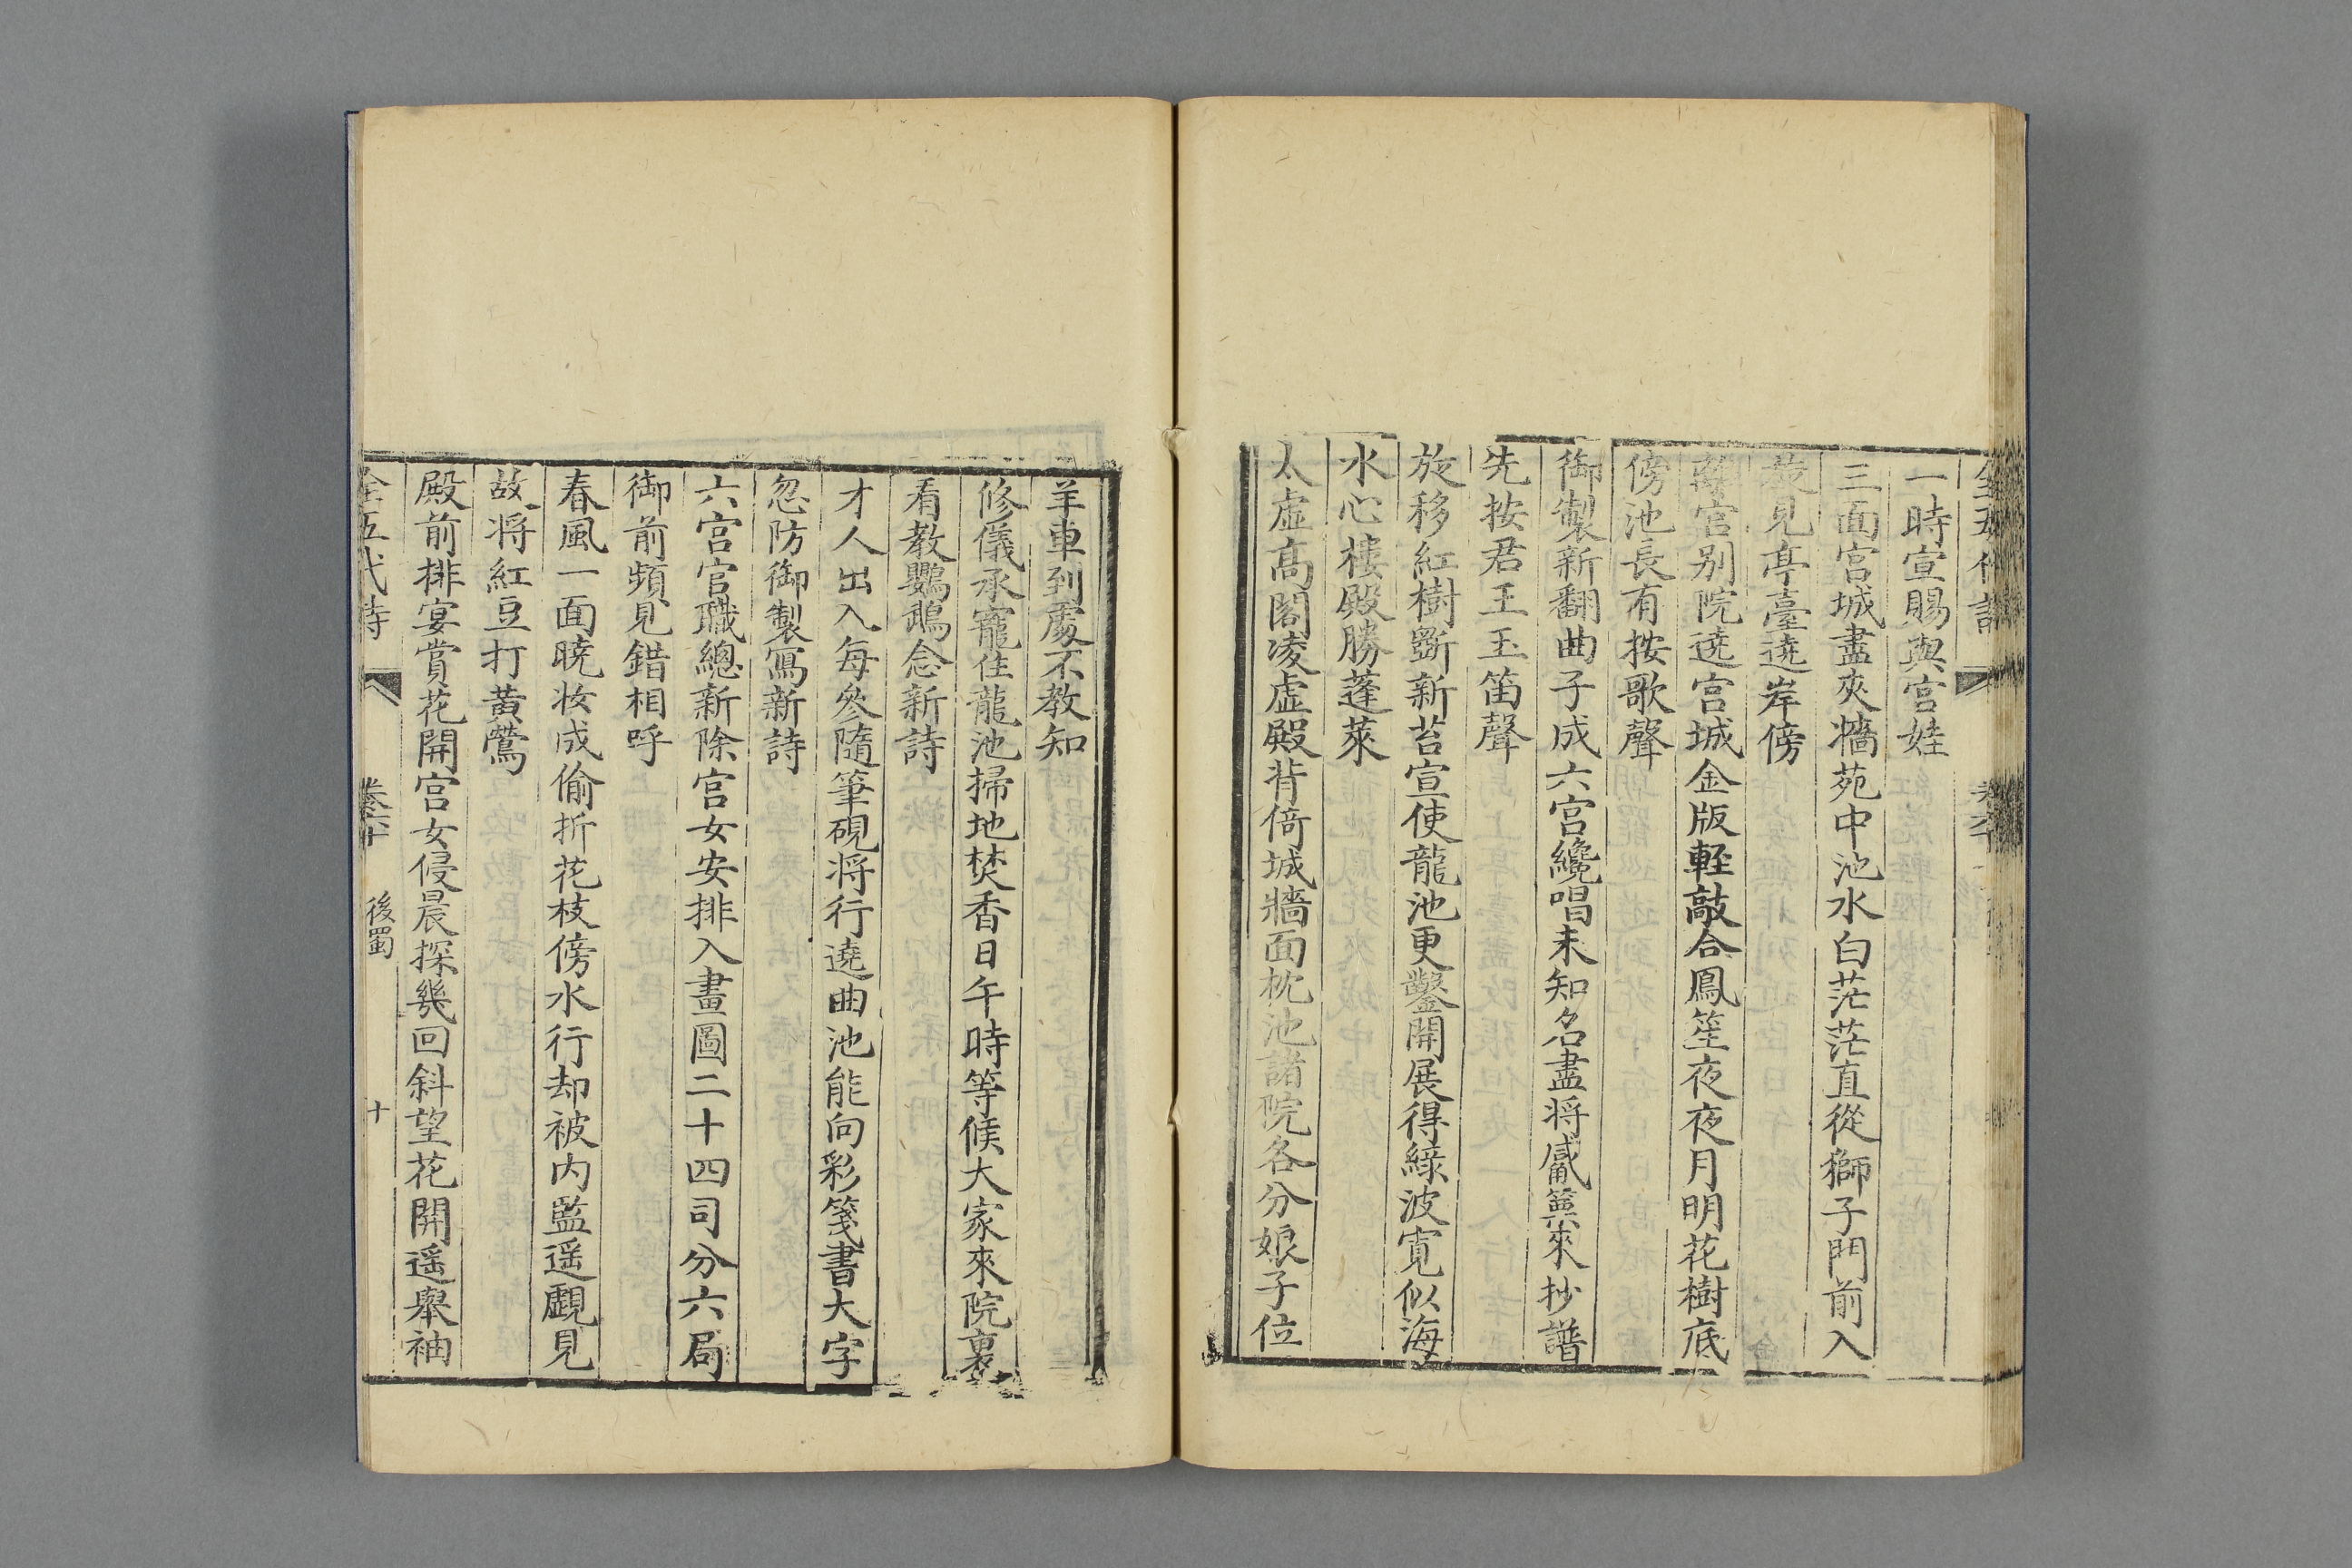 一時宣賜與宮娃
三面宮城盡夾牆苑中池水白茫茫直從獅子門前入
旋見亭臺遶岸傍
離宮别院遶宮城金版輕敲合鳳笙夜夜月明花樹底
傍池長有按歌聲
御製新翻曲子成六宮纔唱未知名盡將觱篥來抄譜
先按君王玉笛聲
旋移紅樹斵新苔宣使龍池更鑿開展得綠波寬似海
水心樓殿勝蓬萊
太虛高閣凌虛殿背倚城牆面枕池諸院各分娘子位
羊車到處不教知
修儀承寵住龍池掃地焚香日午時等候大家來院裏
看教鸚鵡念新詩
才人出入每參隨筆硯將行遶曲池能向彩箋書大字
忽防御製寫新詩
六宮官職總新除宮女安排入畫圖二十四司分六局
御前頻見錯相呼
春風一面曉妝成偷折花枝傍水行却被内監遥覷見
故將紅豆打黄鶯
殿前排宴賞花開宮女侵晨探幾回斜望花開遥舉袖
全五代詩 卷六十 後蜀 十